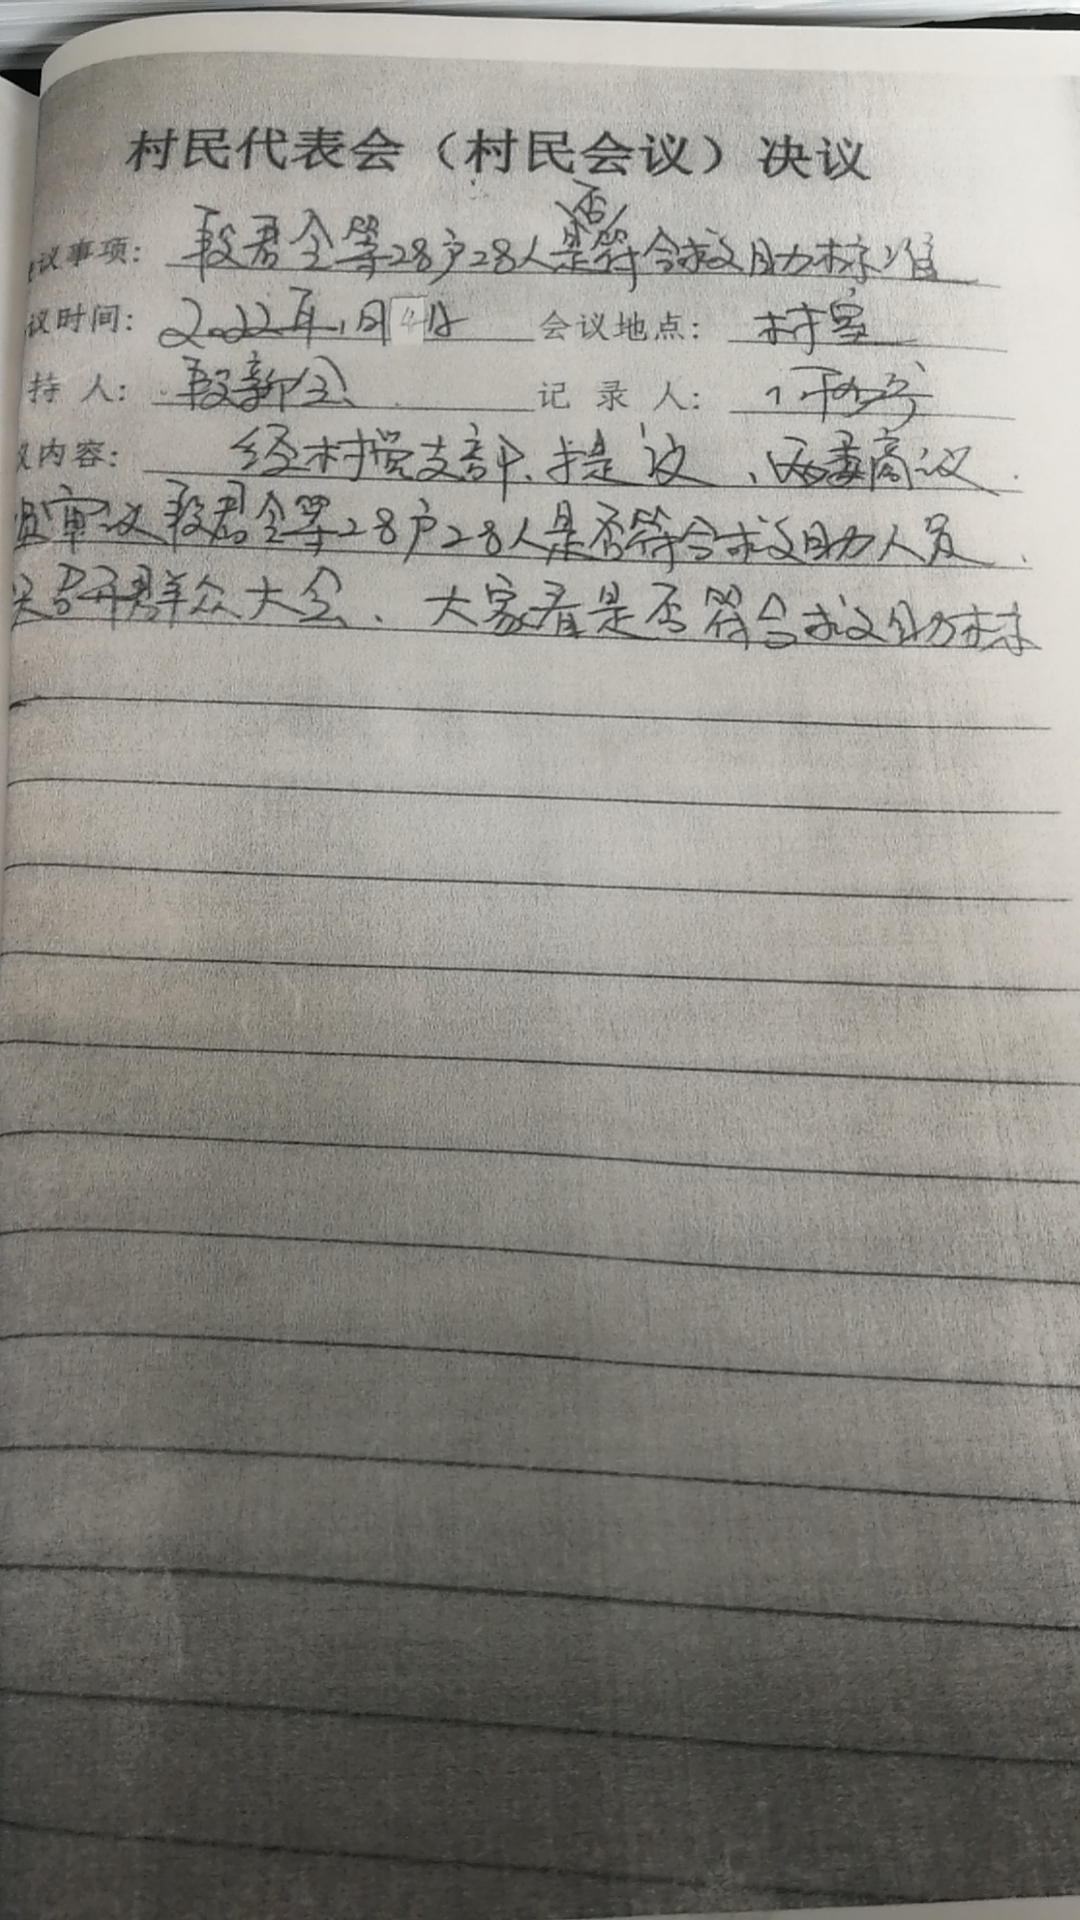 村民代表会（村民会议）决议
否
议事项： 段君全等28户28人是符合救助标准
议时间： 2022年1月4日 会议地点： 村室
持人： 段新会 记录人：
内容： 经村党支部、提议、两委商议
审议段君全等28户28人是否符合救助人员、
召开群众大会、大家看是否符合救助标